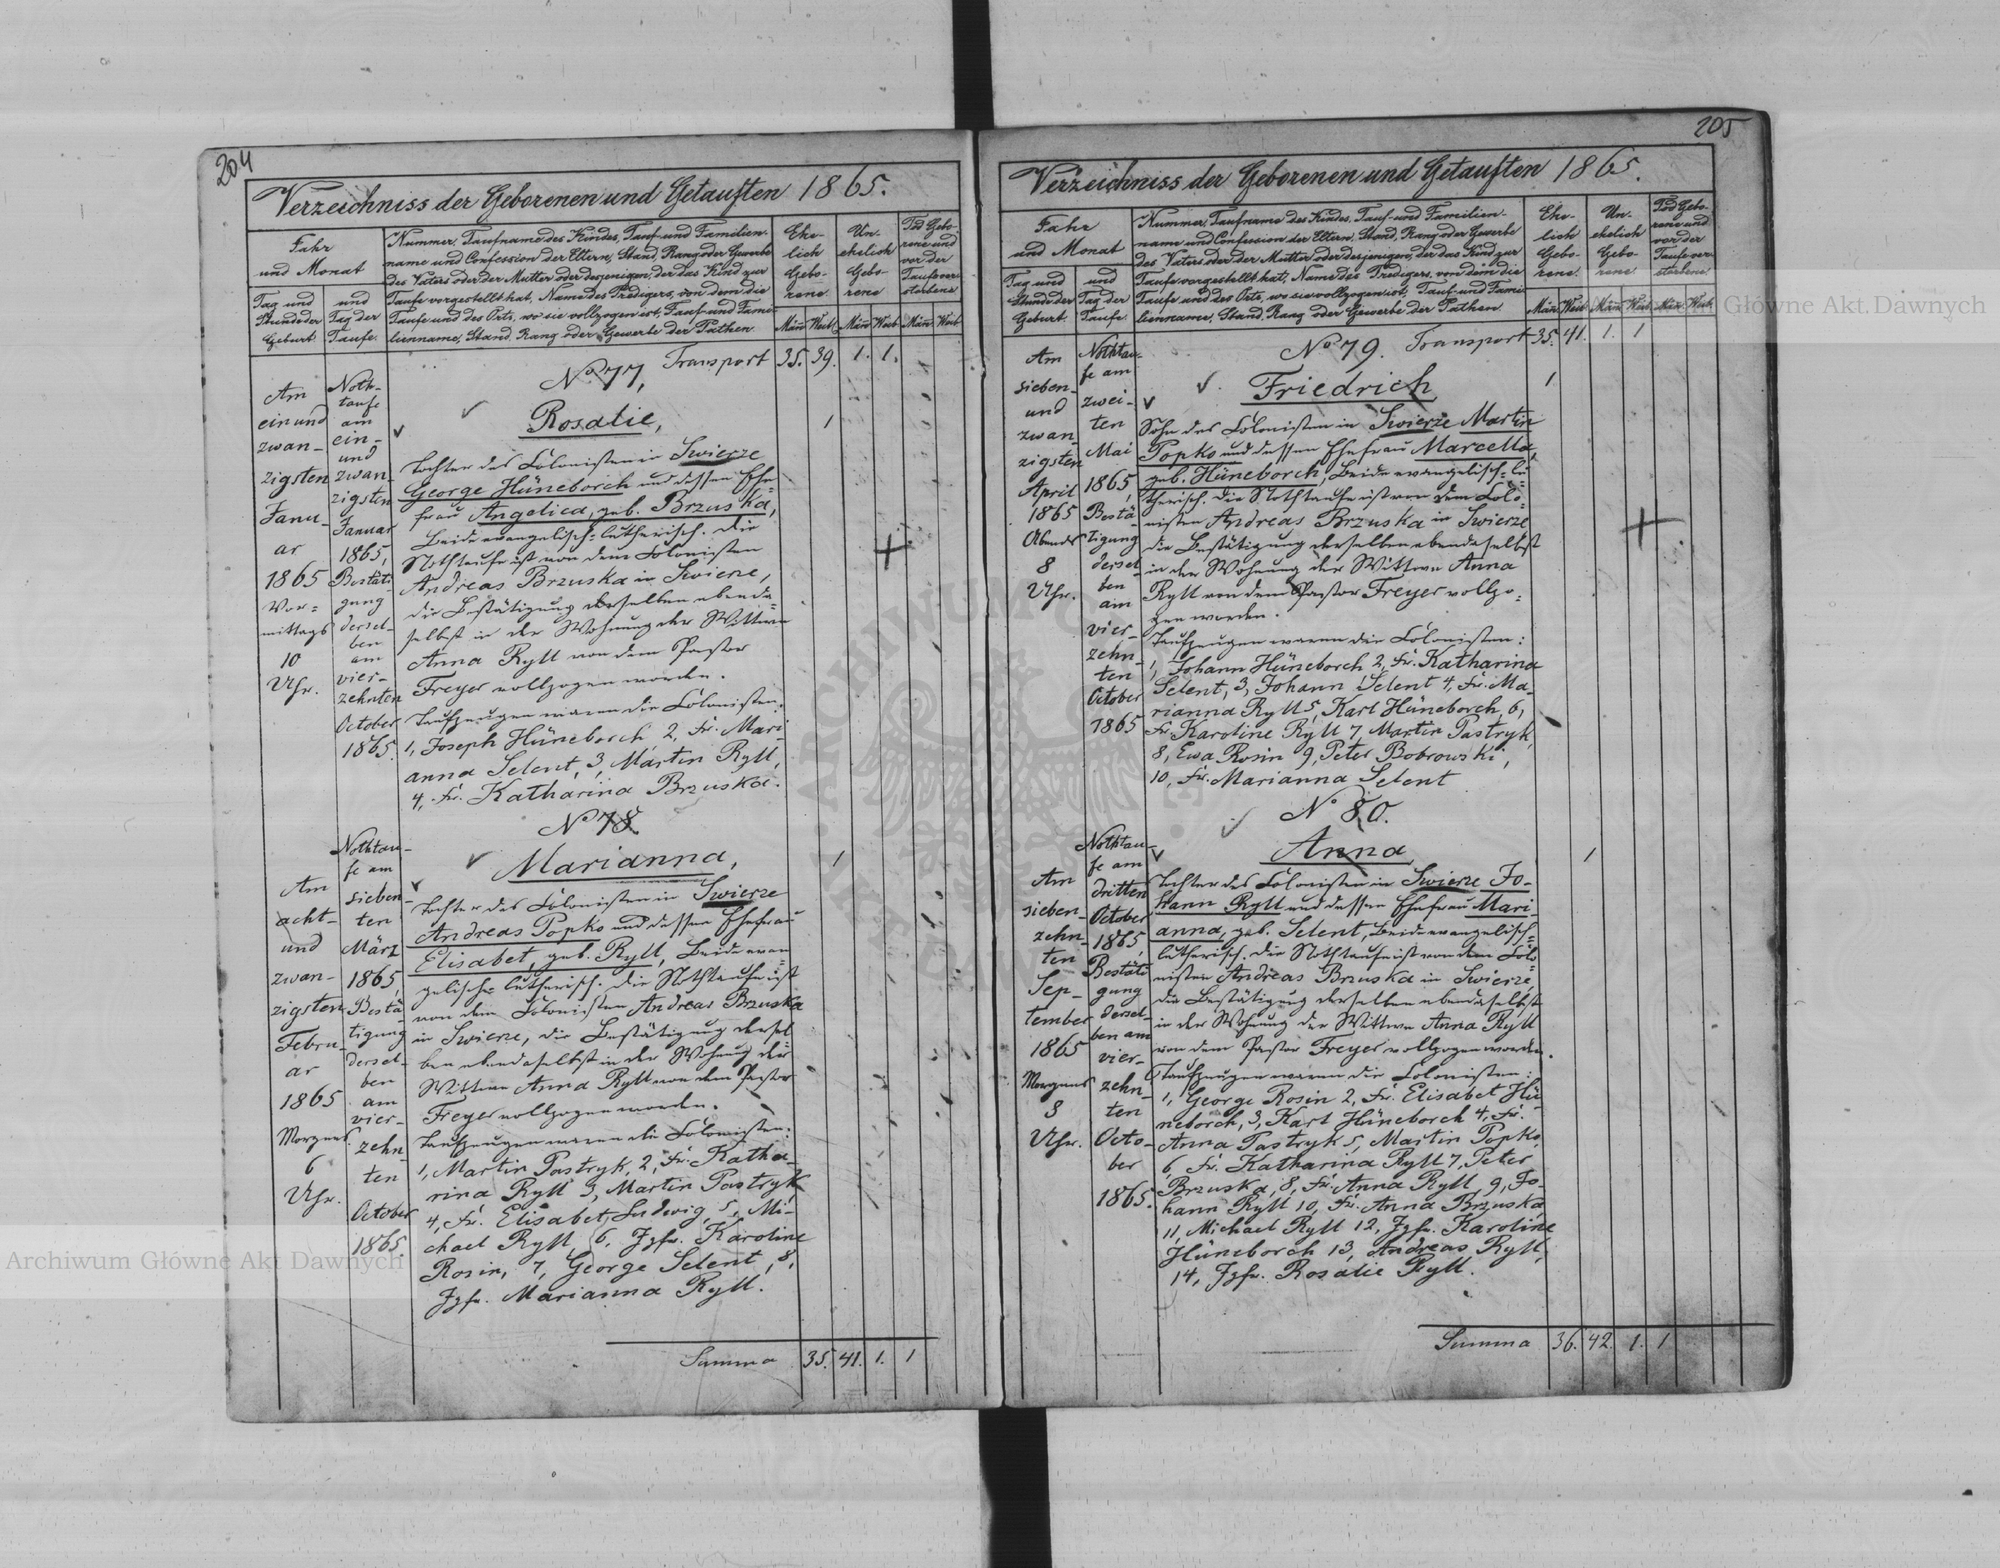 204
Verzeichniss der Geborenen und Getauften 1865.
Jahr
und Monat
Tag und
Stunde der
Geburt.
und
Tag der
Taufe.
Nummer, Taufname des Kindes, Tauf- und Familien-
name und Confession der Eltern, Stand, Rang oder Gewerbe
des Vaters oder der Mutter oder desjenigen, der das Kind zur
Taufe vorgestellt hat, Name des Predigers, von dem die
Taufe und des Orts, wo sie vollzogen ist, Tauf- und Fami-
lienname, Stand, Rang oder Gewerbe der Pathen.
Ehe-
lich
Gebo-
rene.
Un-
ehelich
Gebo-
rene
Tod Gebo-
rene und
vor der
Taufe ver-
storbene.
Män Weib. Män Weib Män Weib
Transport 35. 39. 1. 1.
Am
ein und
zwan-
zigsten
Janu-
ar
1865
Vor-
mittags
10
Uhr.
Noth-
taufe
am
ein-
und
zwan-
zigsten
Januar
1865,
Bestäti-
gung
dersel-
ben
am
vier-
zehnten
October
1865.
No 77,
Rosalie,
1
Tochter des Colonisten in Swierze
George Hüneborch und dessen Ehe-
frau Angelica, geb. Brzuska,
Beide evangelisch-lutherisch. Die
Nothtaufe ist von dem Colonisten
Andreas Brzuska in Swierze,
die Bestätigung derselben ebenda-
selbst in der Wohnung der Wittwe
Anna Ryll von dem Pastor
Freyer vollzogen worden.
Taufzeugen waren die Colonisten:
1, Joseph Hüneborch 2, Fr. Mari-
anna Selent, 3, Martin Ryll,
4, Fr. Katharina Brzuska.
Am
acht-
und
zwan-
zigsten
Febru-
ar
1865
Morgens
6
Uhr.
Nothtau-
fe am
sieben-
ten
März
1865,
Bestä-
tigung
dersel-
ben
am
vier-
zehn-
ten
October
1865.
No 78.
Marianna,
1
Tochter des Colonisten in Swierze
Andreas Popko und dessen Ehefrau
Elisabet, geb. Ryll, Beide evan-
gelisch-lutherisch. Die Nothtaufe ist
von dem Colonisten Andreas Brzuska
in Swierze, die Bestätigung dersel-
ben ebendaselbst in der Wohnung der
Wittwe Anna Ryll von dem Pastor
Freyer vollzogen worden.
Taufzeugen waren die Colonisten:
1, Martin Pastryk, 2, Fr. Katha-
rina Ryll 3, Martin Pastryk
4, Fr. Elisabet Ludwig, 5, Mi-
chael Ryll 6, Jgfr. Karoline
Rosin, 7, George Selent, 8,
Jgfr. Marianna Ryll.
Summa 35. 41. 1. 1
205
Verzeichniss der Geborenen und Getauften 1865.
Jahr
und Monat
Tag und
Stunde der
Geburt.
und
Tag der
Taufe.
Nummer, Taufname des Kindes, Tauf- und Familien-
name und Confession der Eltern, Stand, Rang oder Gewerbe
des Vaters oder der Mutter oder desjenigen, der das Kind zur
Taufe vorgestellt hat, Name des Predigers, von dem die
Taufe und des Orts, wo sie vollzogen ist, Tauf- und Fami-
lienname, Stand, Rang oder Gewerbe der Pathen
Ehe-
lich
Gebo-
rene.
Un-
ehelich
Gebo-
rene
Tod Gebo-
rene und
vor der
Taufe ver-
storbene.
Män Weib Män Weib Män Weib
No 79. Transport 35. 41. 1. 1
Am
sieben-
und
zwan-
zigsten
April
1865
Abends
8
Uhr.
Nothtau-
fe am
zwei-
ten
Mai
1865,
Bestä-
tigung
dersel-
ben
am
vier-
zehn-
ten
October
1865
Friedrich
1
Sohn des Colonisten in Swierze Martin
Popko und dessen Ehefrau Marcella,
geb. Hüneborch, Beide evangelisch-lu-
therisch. Die Nothtaufe ist von dem Colo-
nisten Andreas Brzuska in Swierze
die Bestätigung derselben ebendaselbst
in der Wohnung der Wittwe Anna
Ryll von dem Pastor Freyer vollzo-
gen worden.
Taufzeugen waren die Colonisten:
1, Johann Hüneborch 2, Fr. Katharina
Selent, 3, Johann Selent 4, Fr. Ma-
rianna Ryll 5, Karl Hüneborch, 6,
Fr. Karoline Ryll 7, Martin Pastryk,
8, Ewa Rosin 9, Peter Bobrowski,
10, Fr. Marianna Selent
Am
sieben-
zehn-
ten
Sep-
tember
1865
Morgens
8
Uhr.
Nothtau-
fe am
dritten
October
1865,
Bestäti-
gung
dersel-
ben am
vier-
zehn-
ten
Octo-
ber
1865.
No 80.
Anna
1
Tochter des Colonisten in Swierze Jo-
hann Ryll und dessen Ehefrau Mari-
anna, geb. Selent, Beide evangelisch-
lutherisch. Die Nothtaufe ist von dem Colo-
nisten Andreas Brzuska in Swierze,
die Bestätigung derselben ebendaselbst
in der Wohnung der Wittwe Anna Ryll
von dem Pastor Freyer vollzogen worden.
Taufzeugen waren die Colonisten:
1, George Rosin 2, Fr. Elisabet Hü-
neborch, 3, Karl Hüneborch 4, Fr.
Anna Pastryk 5, Martin Popko
6, Fr. Katharina Ryll 7, Peter
Brzuska, 8, Fr. Anna Ryll, 9, Jo-
hann Ryll 10, Fr. Anna Brzuska
11, Michael Ryll 12, Jgfr. Karoline
Hüneborch 13, Andreas Ryll,
14, Jgfr. Rosalie Ryll.
Summa 36. 42. 1. 1
Archiwum Główne Akt Dawnych
Główne Akt Dawnych